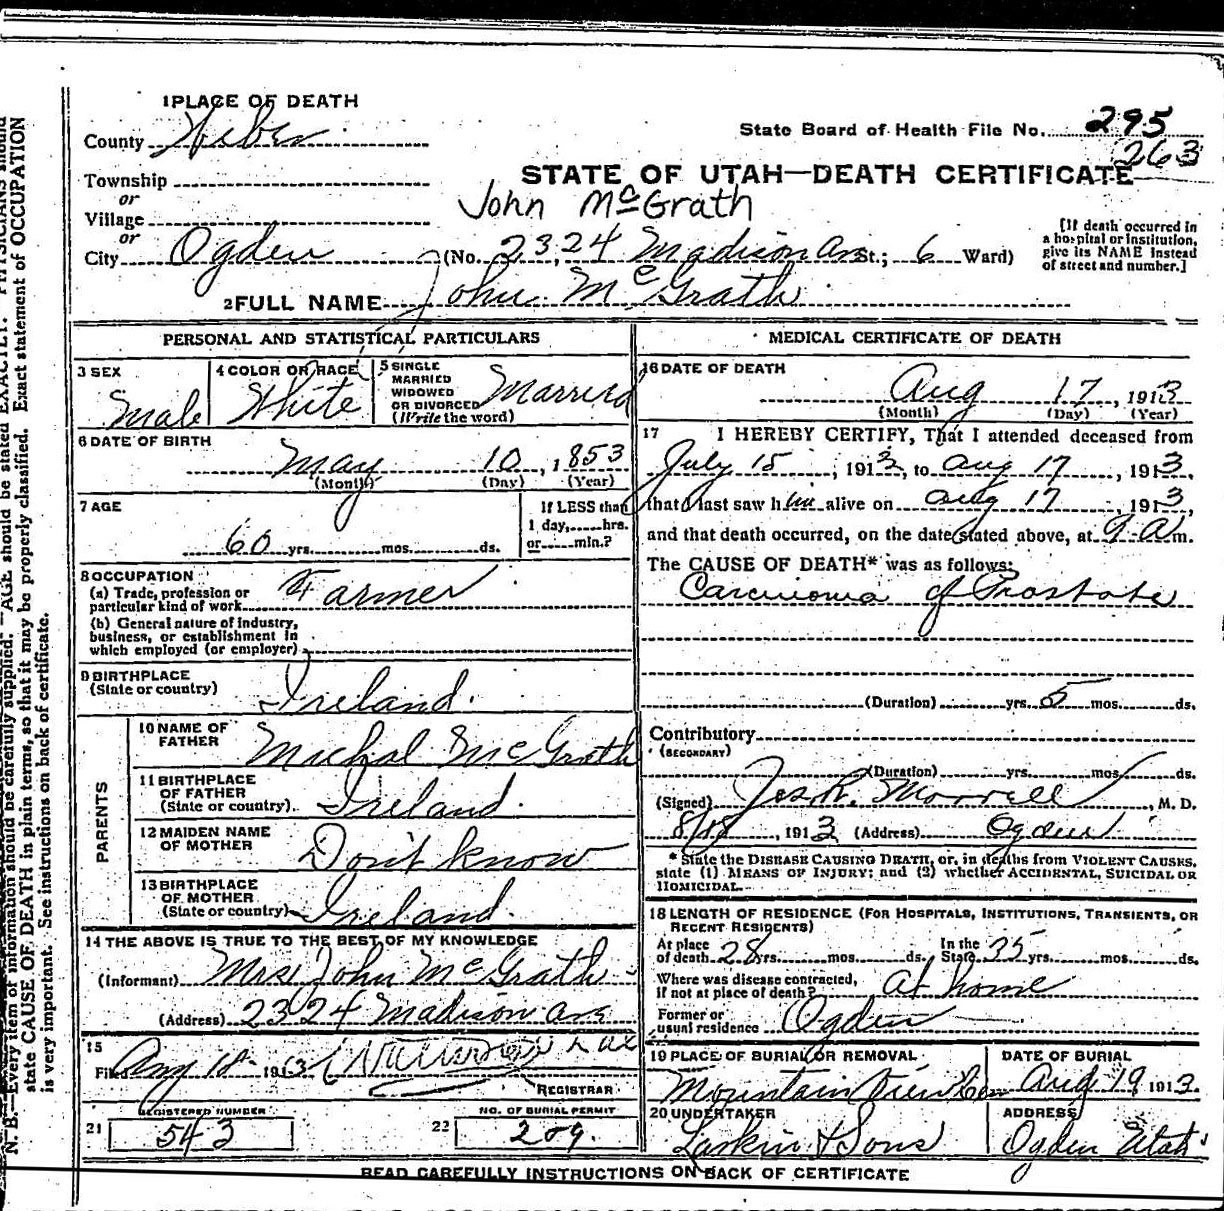 1 PLACE OF DEATH
County Weber
State Board of Health File No. 295
263
Township
or
STATE OF UTAH—DEATH CERTIFICATE
John McGrath
Village
or
City Ogden (No. 2324 Madison Ave St.; 6 Ward)
[If death occurred in
a hospital or institution,
give its NAME instead
of street and number.]
2 FULL NAME John McGrath
PERSONAL AND STATISTICAL PARTICULARS
3 SEX
Male
4 COLOR OR RACE
White
5 SINGLE
MARRIED
WIDOWED
OR DIVORCED
(Write the word)
Married
6 DATE OF BIRTH
May 10, 1853
(Month) (Day) (Year)
7 AGE
60 yrs. mos. ds.
If LESS than
1 day, hrs.
or min.?
8 OCCUPATION
(a) Trade, profession or
particular kind of work
Farmer
(b) General nature of industry,
business, or establishment in
which employed (or employer)
9 BIRTHPLACE
(State or country)
Ireland.
PARENTS
10 NAME OF
FATHER
Michal McGrath
11 BIRTHPLACE
OF FATHER
(State or country)
Ireland.
12 MAIDEN NAME
OF MOTHER
Don't know
13 BIRTHPLACE
OF MOTHER
(State or country)
Ireland.
14 THE ABOVE IS TRUE TO THE BEST OF MY KNOWLEDGE
(Informant) Mrs John McGrath
(Address) 2324 Madison Ave
15
Filed Aug 18 1913
REGISTRAR
21
REGISTERED NUMBER
543
22
NO. OF BURIAL PERMIT
209.
MEDICAL CERTIFICATE OF DEATH
16 DATE OF DEATH
Aug 17, 1913
(Month) (Day) (Year)
17 I HEREBY CERTIFY, That I attended deceased from
July 15, 1913, to Aug 17, 1913,
that I last saw him alive on Aug 17, 1913,
and that death occurred, on the date stated above, at 9 A m.
The CAUSE OF DEATH* was as follows:
Carcinoma of Prostate
(Duration) yrs. 5 mos. ds.
Contributory
(SECONDARY)
(Duration) yrs. mos. ds.
(Signed) Jos. R. Morrell, M. D.
8/18, 1913 (Address) Ogden
* State the DISEASE CAUSING DEATH, or, in deaths from VIOLENT CAUSES,
state (1) MEANS OF INJURY; and (2) whether ACCIDENTAL, SUICIDAL OR
HOMICIDAL.
18 LENGTH OF RESIDENCE (FOR HOSPITALS, INSTITUTIONS, TRANSIENTS, OR
RECENT RESIDENTS)
At place
of death 28 yrs. mos. ds.
In the
State 35 yrs. mos. ds.
Where was disease contracted,
if not at place of death? At home
Former or
usual residence Ogden
19 PLACE OF BURIAL OR REMOVAL
Mountain View Cem
DATE OF BURIAL
Aug 19 1913.
20 UNDERTAKER
Larkin & Sons
ADDRESS
Ogden Utah
READ CAREFULLY INSTRUCTIONS ON BACK OF CERTIFICATE
N. B.—Every item of information should be carefully supplied. AGE should be stated EXACTLY. PHYSICIANS should
state CAUSE OF DEATH in plain terms, so that it may be properly classified. Exact statement of OCCUPATION
is very important. See instructions on back of certificate.